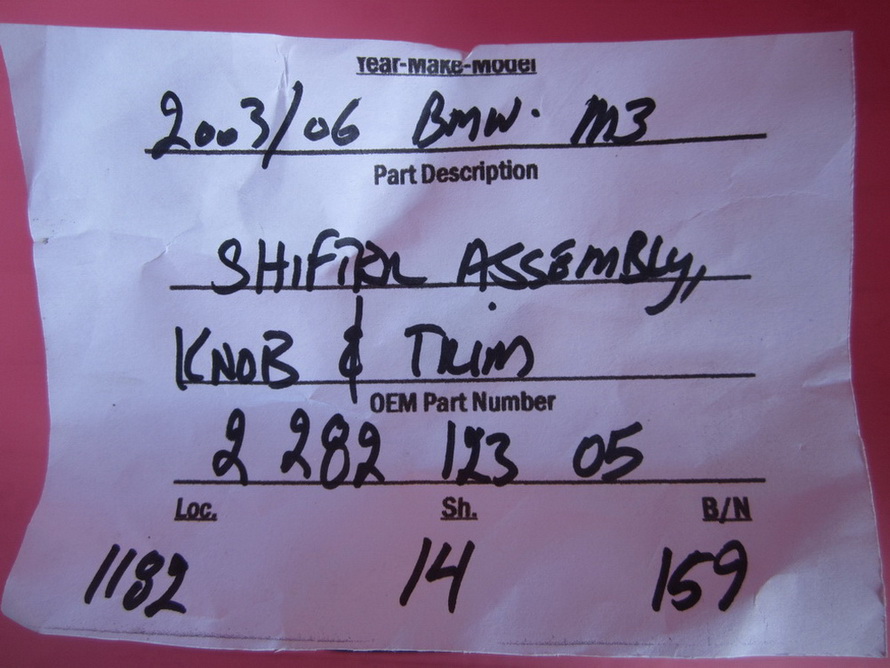 Year-Make-Model
2003/06 BMW. M3
Part Description
SHIFTER ASSEMBLY,
KNOB & TRIM
OEM Part Number
2 282 123 05
Loc. Sh. B/N
1182 14 159